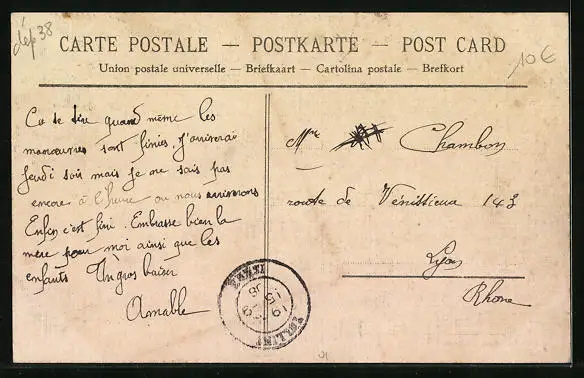 dép 38
CARTE POSTALE — POSTKARTE — POST CARD
10€
Union postale universelle — Briefkaart — Cartolina postale — Brefkort
Ce de dire quand même les
manœuvres sont finies. J'arriverai
jeudi soir mais je ne sais pas
encore à l'heure où nous arriverons
Enfin c'est fini. Embrasse bien la
mère pour moi ainsi que les
enfants Un gros baiser
Amable
Mme Chambon
route de Vénissieux 143
Lyon
Rhône
19